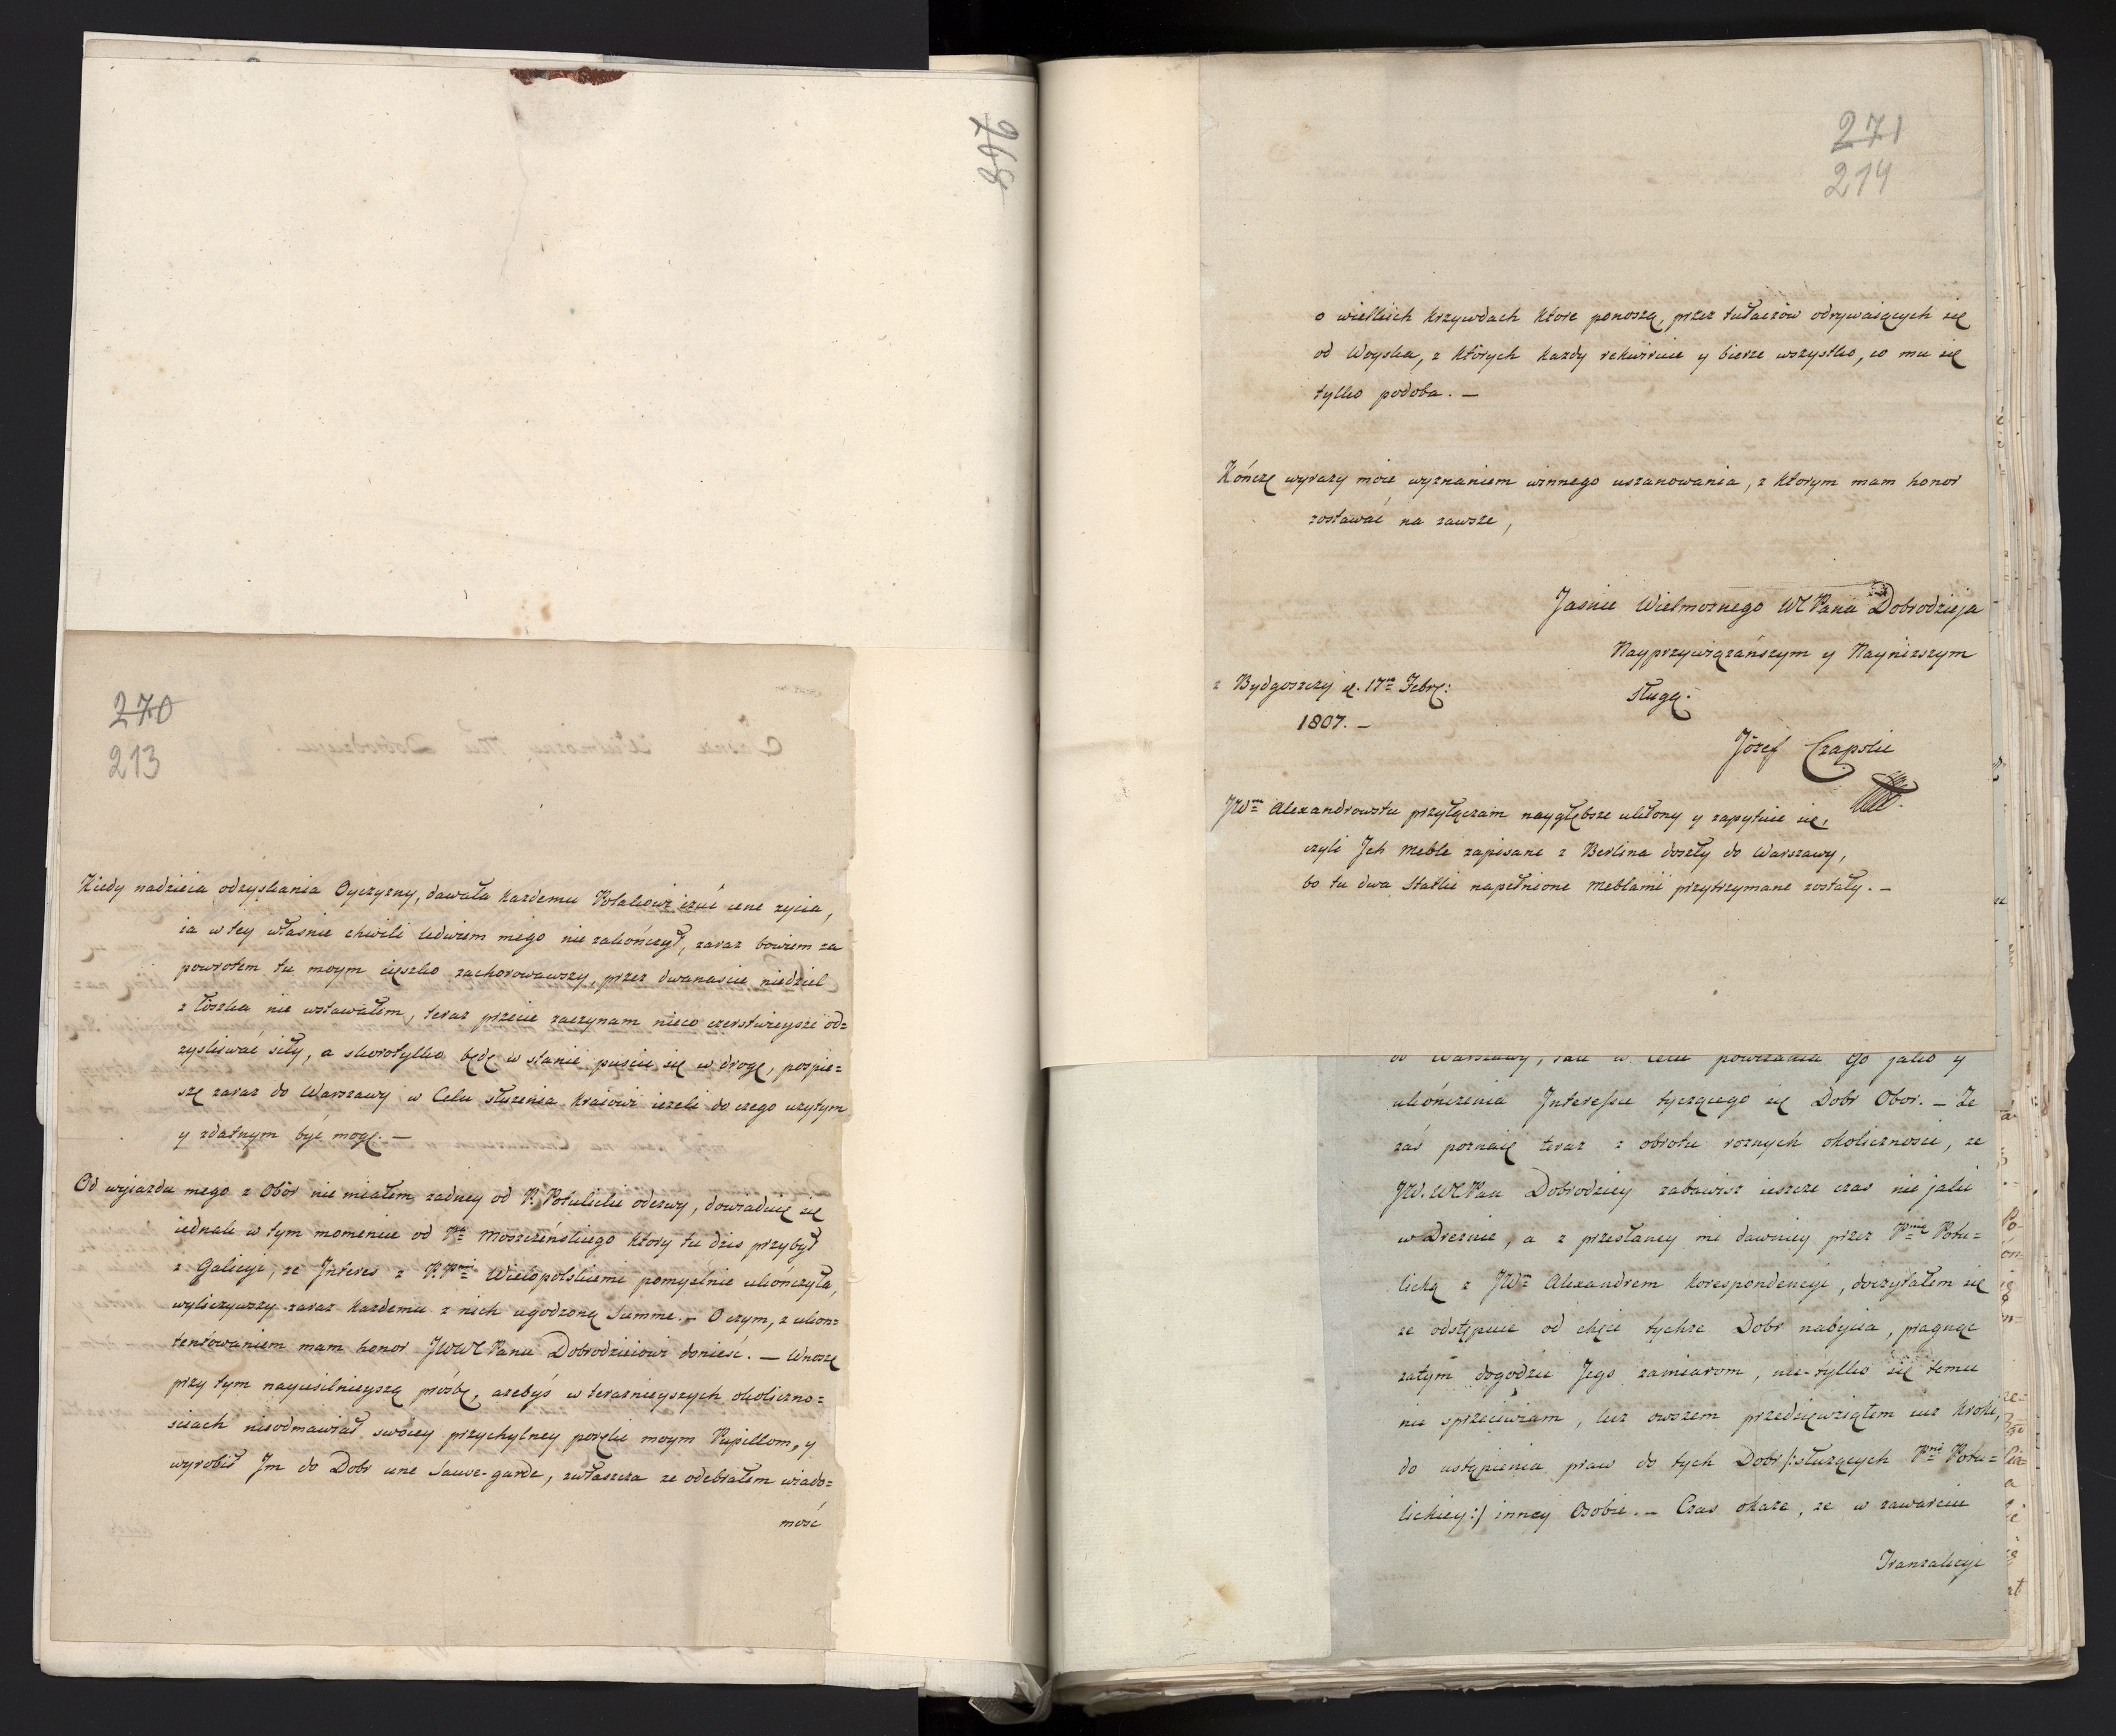 268
270
213
Kiedy nadzieia odzyskania Oyczyzny, dawała każdemu Polakowi czuć cenę życia,
ia w tey właśnie chwili ledwiem mego nie zakończył, zaraz bowiem za
powrotem tu moym cięszko zachorowawszy, przez dwanaście niedziel
z łószka nie wstawałem, teraz przecie zaczynam nieco czerstwieysze od=
zyskiwać siły, a skorotylko będę w stanie puścić się w drogę, pospie=
szę zaraz do Warszawy w Celu służenia kraiowi ieżeli do czego użytym
y zdatnym być mogę. —
Od wyiazdu mego z Obór nie miałem żadney od P. Potulickie odezwy, dowiaduię się
iednak w tym momencie od Pa Moszczeńskiego ktory tu dzis przybył
z Galicyi, że Interes z P.Pmi Wielopolskiemi pomyślnie ukończyła,
wyliczywszy zaraz każdemu z nich ugodzoną Summę. — O czym, z ukon=
tentowaniem mam honor JWWPanu Dobrodzieiowi donieść. — Wnoszę
przy tym nayusilnieyszą prośbę, ażebyś w teraznieyszych okoliczno=
ściach nieodmawiał swoiey przychylney poręki moym Pupillom, y
wyrobił Im do Dobr une Sauve-garde, zwłaszcza że odebrałem wiado=
mość
271
214
o wielkich krzywdach ktore ponoszą, przez tułaczów odrywaiących się
od Woyska, z ktorych każdy rekwiruie y bierze wszystko, co mu się
tylko podoba. —
Kończę wyrazy moie wyznaniem winnego uszanowania, z ktorym mam honor
zostawać na zawsze,
Jasnie Wielmożnego WPana Dobrodzieja
Nayprzywiązańszym y Nayniższym
sługą.
z Bydgoszczy d. 17ma Febr:
1807. —
Józef Czapski
JWm Alexandrowstu przyłączam naygłębsze ukłony y zapytuie się,
czyli Jch meble zapisane z Berlina doszły do Warszawy,
bo tu dwa Statki napełnione meblami przytrzymane zostały. —
do Warszawy, tak w celu powitania Go jako y
ukończenia Interessu tyczącego się Dobr Obor. — Że
zaś poznaię teraz z obrotu roznych okoliczności, że
JW. WPan Dobrodziey zabawisz ieszcze czas nie jaki
w Dreznie, a z przesłaney mi dawniey przez Pmą Potu=
licką z JWm Alexandrem korespondencyi, doczytałem się
że odstępuie od chęci tychże Dobr nabycia, pragnąc
zatym dogodzić Jego zamiarom, nie-tylko się temu
nie sprzeciwiam, lecz owszem przedsięwziąłem iuż kroki,
do ustąpienia praw do tych Dobr /:służących Pni Potu=
lickiey:/ inney Osobie. — Czas okaże, że w zawarciu
Tranzakcyi